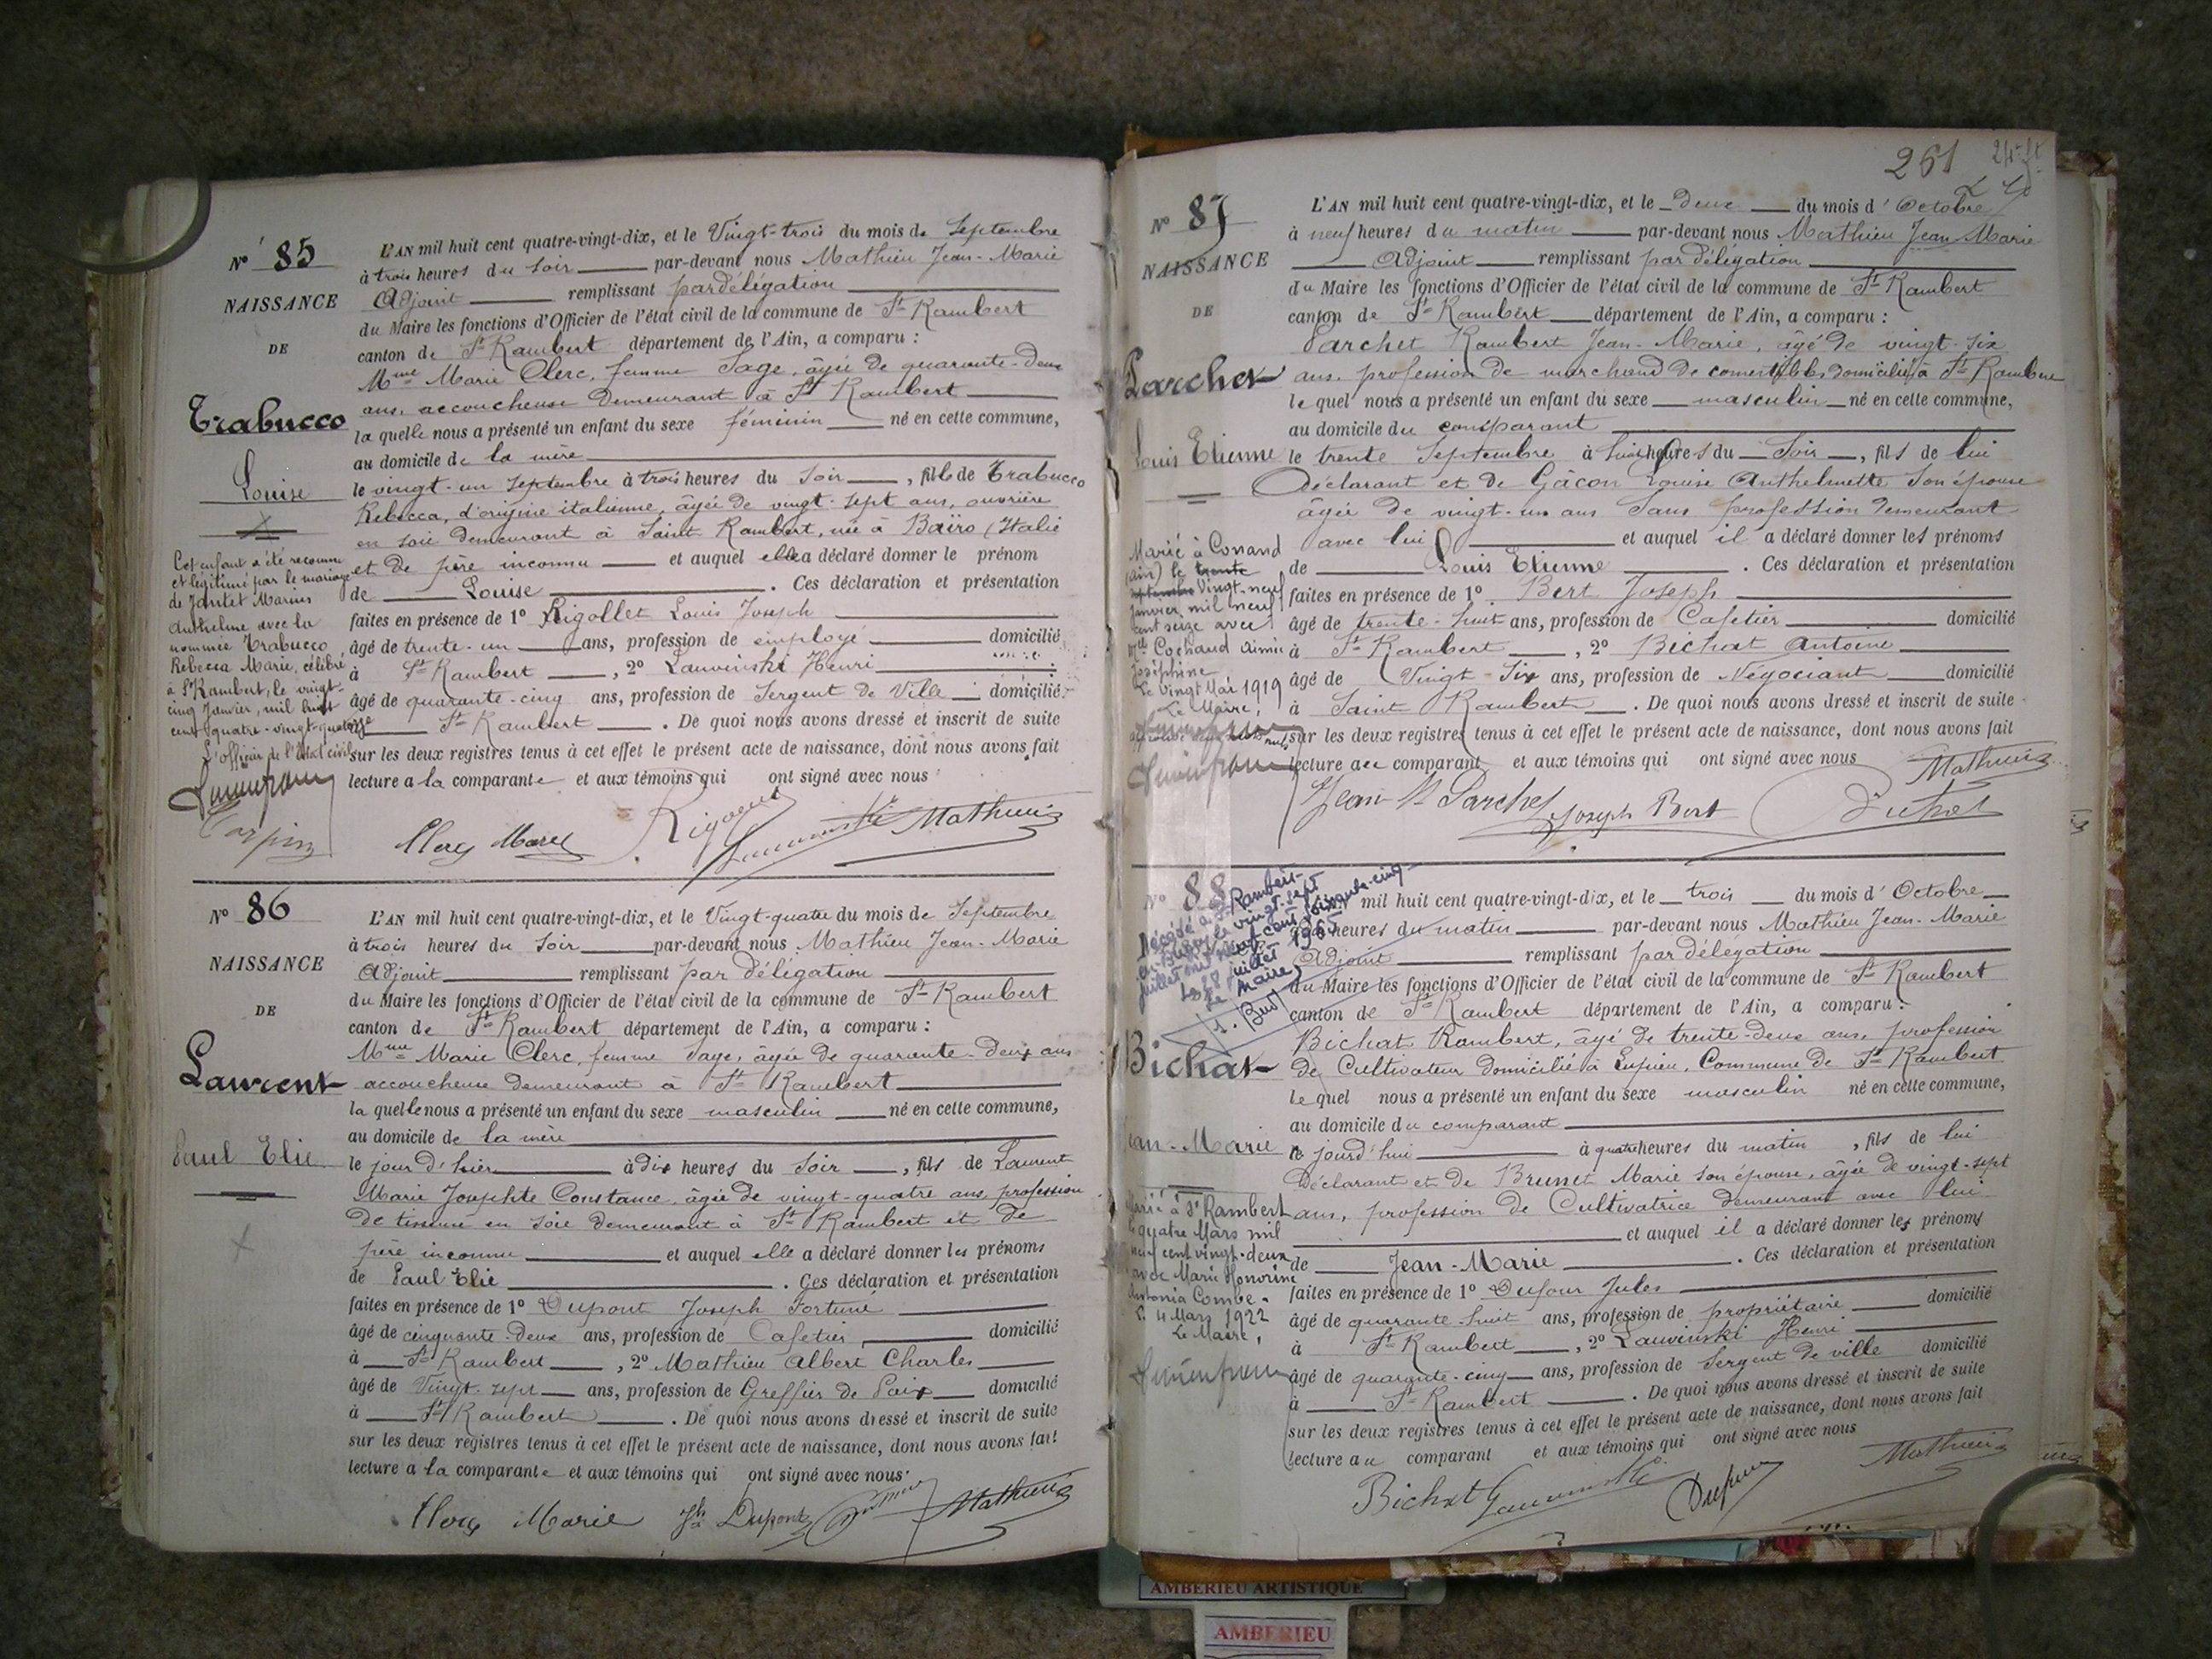 Nº 85
NAISSANCE
DE
Trabucco
Louise
Cet enfant a été reconnu
et légitimé par le mariage
de Jantet Marius
Anthelme avec la
nommée Trabucco
Rebecca Marie, célébré
à St Rambert, le vingt-
cinq Janvier, mil huit
cent quatre-vingt-quatorze
L'officier de l'état civil
L'AN mil huit cent quatre-vingt-dix, et le Vingt-trois du mois de Septembre
à trois heures du soir par-devant nous Mathieu Jean-Marie
Adjoint remplissant par délégation
du Maire les fonctions d'Officier de l'état civil de la commune de St Rambert
canton de St Rambert département de l'Ain, a comparu :
Mme Marie Clerc, femme Sage, âgée de quarante-deux
ans, accoucheuse demeurant à St Rambert
la quelle nous a présenté un enfant du sexe féminin né en cette commune,
au domicile de la mère
le vingt-un septembre à trois heures du soir, fille de Trabucco
Rebecca, d'origine italienne, âgée de vingt-sept ans, ouvrière
en soie demeurant à Saint Rambert, née à Baïro (Italie
et de père inconnu et auquel elle a déclaré donner le prénom
de Louise. Ces déclaration et présentation
faites en présence de 1º Rigollet Louis Joseph
âgé de trente-un ans, profession de employé domicilié
à St Rambert, 2º Lauvinski Henri
âgé de quarante-cinq ans, profession de Sergent de Ville domicilié
St Rambert. De quoi nous avons dressé et inscrit de suite
sur les deux registres tenus à cet effet le présent acte de naissance, dont nous avons fait
lecture a la comparante et aux témoins qui ont signé avec nous
Clerc Marie Mathieu
Nº 86
NAISSANCE
DE
Laurent
Paul Elie
L'AN mil huit cent quatre-vingt-dix, et le Vingt-quatre du mois de Septembre
à trois heures du soir par-devant nous Mathieu Jean-Marie
Adjoint remplissant par délégation
du Maire les fonctions d'Officier de l'état civil de la commune de St Rambert
canton de St Rambert département de l'Ain, a comparu :
Mme Marie Clerc, femme Sage, âgée de quarante-deux ans
accoucheuse demeurant à St Rambert
la quelle nous a présenté un enfant du sexe masculin né en cette commune,
au domicile de la mère
le jour d'hier à dix heures du soir, fils de Laurent
Marie Josephte Constance, âgée de vingt-quatre ans, profession
de tisseuse en soie demeurant à St Rambert et de
père inconnu et auquel elle a déclaré donner les prénoms
de Paul Elie. Ces déclaration et présentation
faites en présence de 1º Dupont Joseph Fortuné
âgé de cinquante-deux ans, profession de Cafetier domicilié
à St Rambert, 2º Mathieu Albert Charles
âgé de Vingt-sept ans, profession de Greffier de Paix domicilié
à St Rambert. De quoi nous avons dressé et inscrit de suite
sur les deux registres tenus à cet effet le présent acte de naissance, dont nous avons fait
lecture a la comparante et aux témoins qui ont signé avec nous
Clerc Marie Jh Dupont Mathieu
261
Nº 87
NAISSANCE
DE
Parchet
Louis Etienne
Marié à Conand
(ain) le trente
septembre Vingt-neuf
Janvier mil neuf
cent seize avec
Mlle Cochaud Aimée
Joséphine
Le Vingt Mai 1919
Le Maire,
L'AN mil huit cent quatre-vingt-dix, et le deux du mois d'Octobre
à neuf heures du matin par-devant nous Mathieu Jean Marie
Adjoint remplissant par délégation
du Maire les fonctions d'Officier de l'état civil de la commune de St Rambert
canton de St Rambert département de l'Ain, a comparu :
Parchet Rambert Jean-Marie, âgé de vingt-six
ans, profession de marchand de comestibles domicilié à St Rambert
le quel nous a présenté un enfant du sexe masculin né en cette commune,
au domicile du comparant
le trente Septembre à huit heures du Soir, fils de lui
déclarant et de Gâcon Louise Anthelmette son épouse
âgée de vingt-un ans sans profession demeurant
avec lui et auquel il a déclaré donner les prénoms
de Louis Etienne. Ces déclaration et présentation
faites en présence de 1º Bert Joseph
âgé de trente-huit ans, profession de Cafetier domicilié
à St Rambert, 2º Bichat Antoine
âgé de Vingt-six ans, profession de Négociant domicilié
à Saint Rambert. De quoi nous avons dressé et inscrit de suite
sur les deux registres tenus à cet effet le présent acte de naissance, dont nous avons fait
lecture au comparant et aux témoins qui ont signé avec nous
Jean M Parchet Joseph Bert Mathieu
Nº 88
Décédé à St Rambert-
en-Bugey le vingt-sept
juillet mil neuf cent soixante-cinq
Le 28 juillet 1965
Le Maire,
Bichat
Jean-Marie
Marié à St Rambert
le quatre Mars mil
neuf cent vingt-deux
avec Marie Honorine
Antonia Combe.
Le 4 Mars 1922
Le Maire,
mil huit cent quatre-vingt-dix, et le trois du mois d'Octobre
heures du matin par-devant nous Mathieu Jean-Marie
Adjoint remplissant par délégation
du Maire les fonctions d'Officier de l'état civil de la commune de St Rambert
canton de St Rambert département de l'Ain, a comparu :
Bichat Rambert, âgé de trente-deux ans, profession
de Cultivateur domicilié à Lupieu, Commune de St Rambert
le quel nous a présenté un enfant du sexe masculin né en cette commune,
au domicile du comparant
ce jourd'hui à quatre heures du matin, fils de lui
déclarant et de Brunet Marie son épouse, âgée de vingt-sept
ans, profession de Cultivatrice demeurant avec lui
et auquel il a déclaré donner les prénoms
de Jean-Marie. Ces déclaration et présentation
faites en présence de 1º Dufour Jules
âgé de quarante huit ans, profession de propriétaire domicilié
à St Rambert, 2º Lauvinski Henri
âgé de quarante-cinq ans, profession de Sergent de ville domicilié
à St Rambert. De quoi nous avons dressé et inscrit de suite
sur les deux registres tenus à cet effet le présent acte de naissance, dont nous avons fait
lecture au comparant et aux témoins qui ont signé avec nous
Bichat Dufour Mathieu
AMBERIEU ARTISTIQUE
AMBERIEU